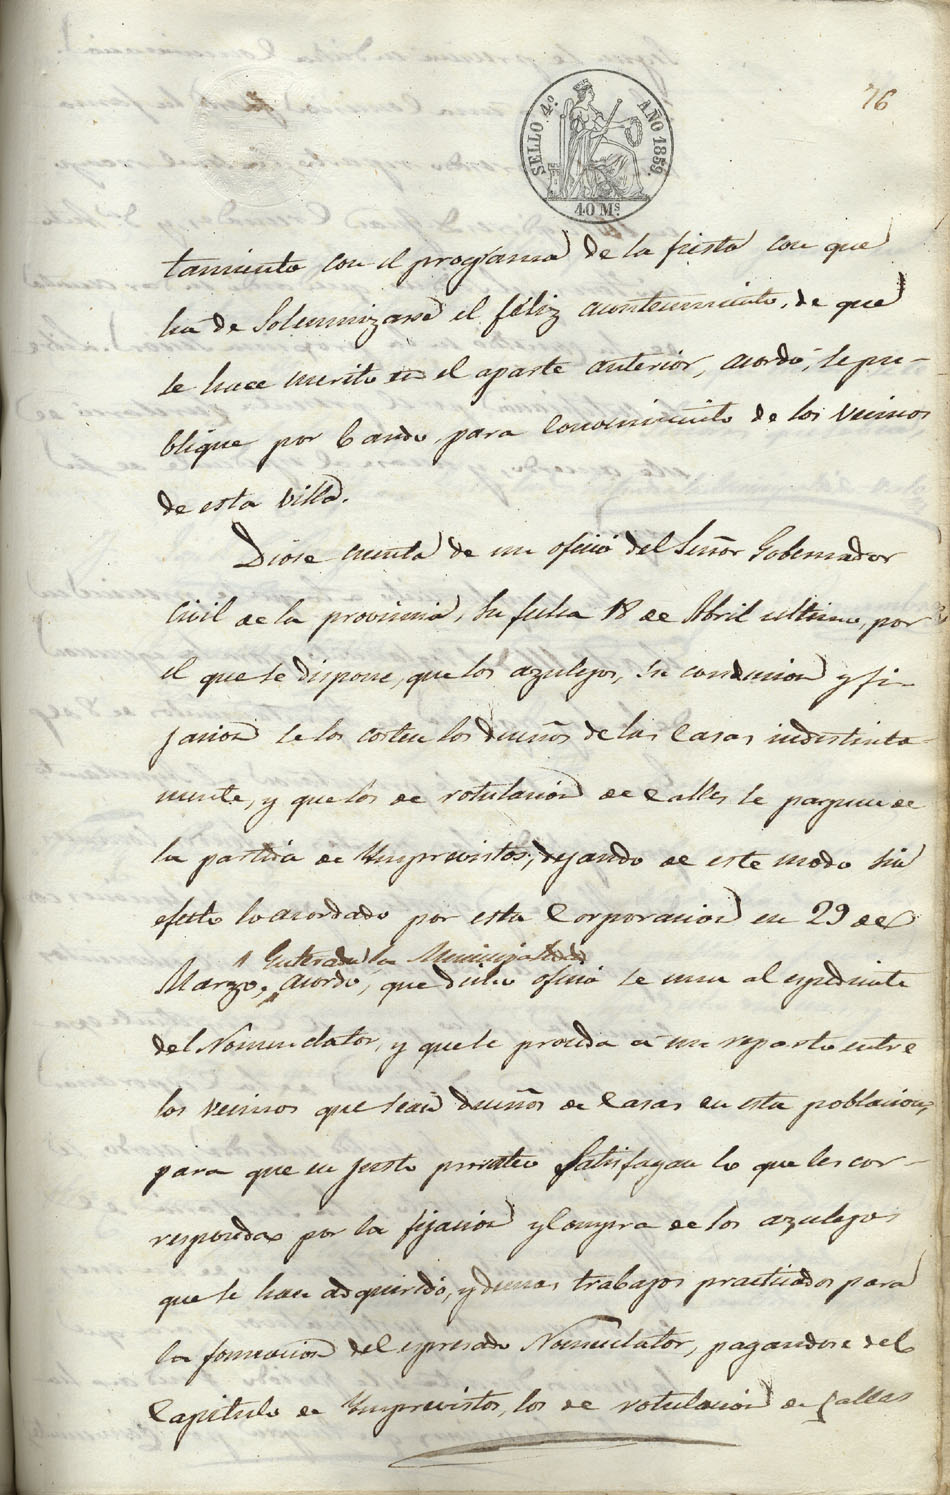 76
SELLO 4º. AÑO 1859.
40 Ms.
tamiento con el programa de la fiesta con que
ha de Solemnizarse el féliz acontecimiento, de que
se hace merito en el aparte anterior, acordó, se pu-
blique por bando para conocimiento de los vecinos
de esta villa.
Diose cuenta de un oficio del Señor Gobernador
Civil de la provincia, su fecha 18 de Abril ultimo, por
el que se dispone, que los azulejos, su conducion y fi-
jacion se los costeen los dueños de las Casas indistinta-
mente, y que los de rotulacion de Calles se paguen de
la partida de Ymprevistos, dejando de este modo sin
efecto lo acordado por esta Corporacion en 29 de
Enterada la Municipalidad
Marzo, acordó, que dicho oficio se una al espediente
del Nomenclator, y que se proceda á un reparto entre
los vecinos que sean dueños de Casas en esta poblacion,
para que en justo prorrateo Satisfagan lo que les cor-
responda por la fijacion y Compra de los azulejos
que se han adquirido, y demas trabajos practicados para
la formacion del espresado Nomenclator, pagandose del
Capitulo de Ymprevistos, los de rotulacion de Calles